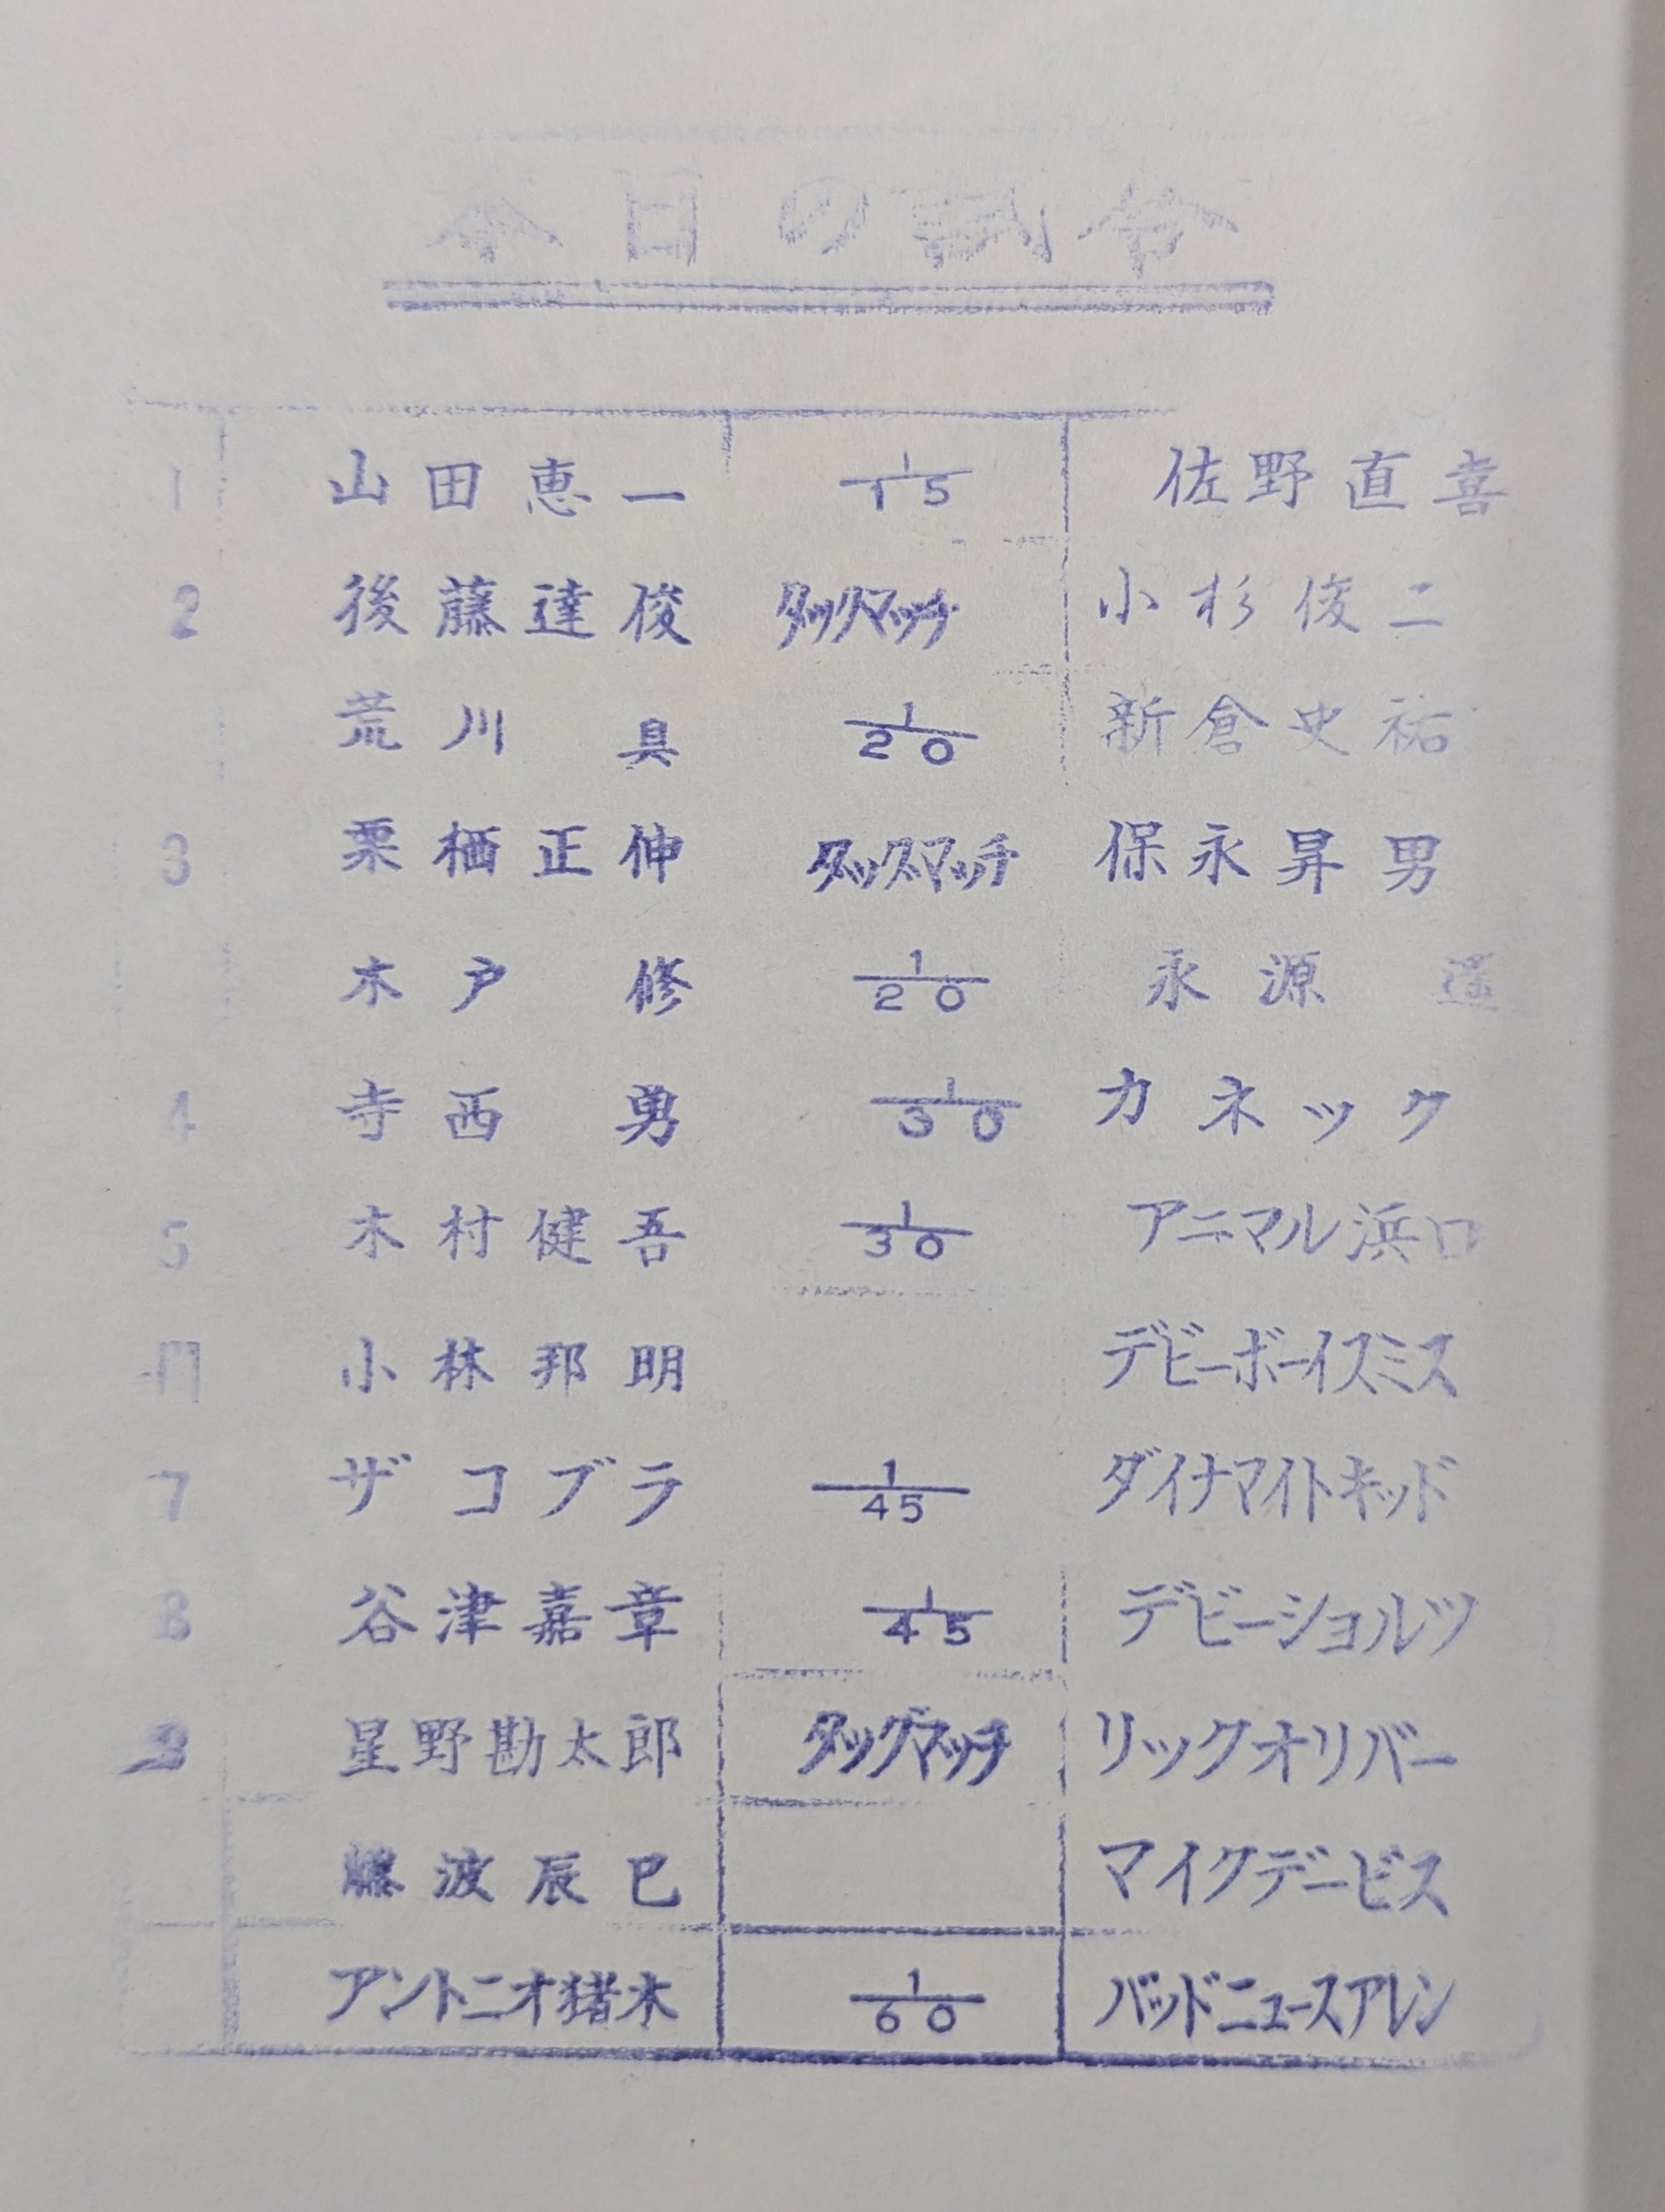 今日の試合
1 山田恵一 1/15 佐野直喜
2 後藤達俊 タッグマッチ 小杉俊二
荒川 真 1/20 新倉史祐
3 栗栖正伸 タッグマッチ 保永昇男
木戸 修 1/20 永源 遥
4 寺西 勇 1/30 カネック
5 木村健吾 1/30 アニマル浜口
小林邦明 デビーボーイスミス
7 ザコブラ 1/45 ダイナマイトキッド
8 谷津嘉章 1/45 デビーショルツ
星野勘太郎 タッグマッチ リックオリバー
藤波辰巳 マイクデービス
アントニオ猪木 1/60 バッドニュースアレン